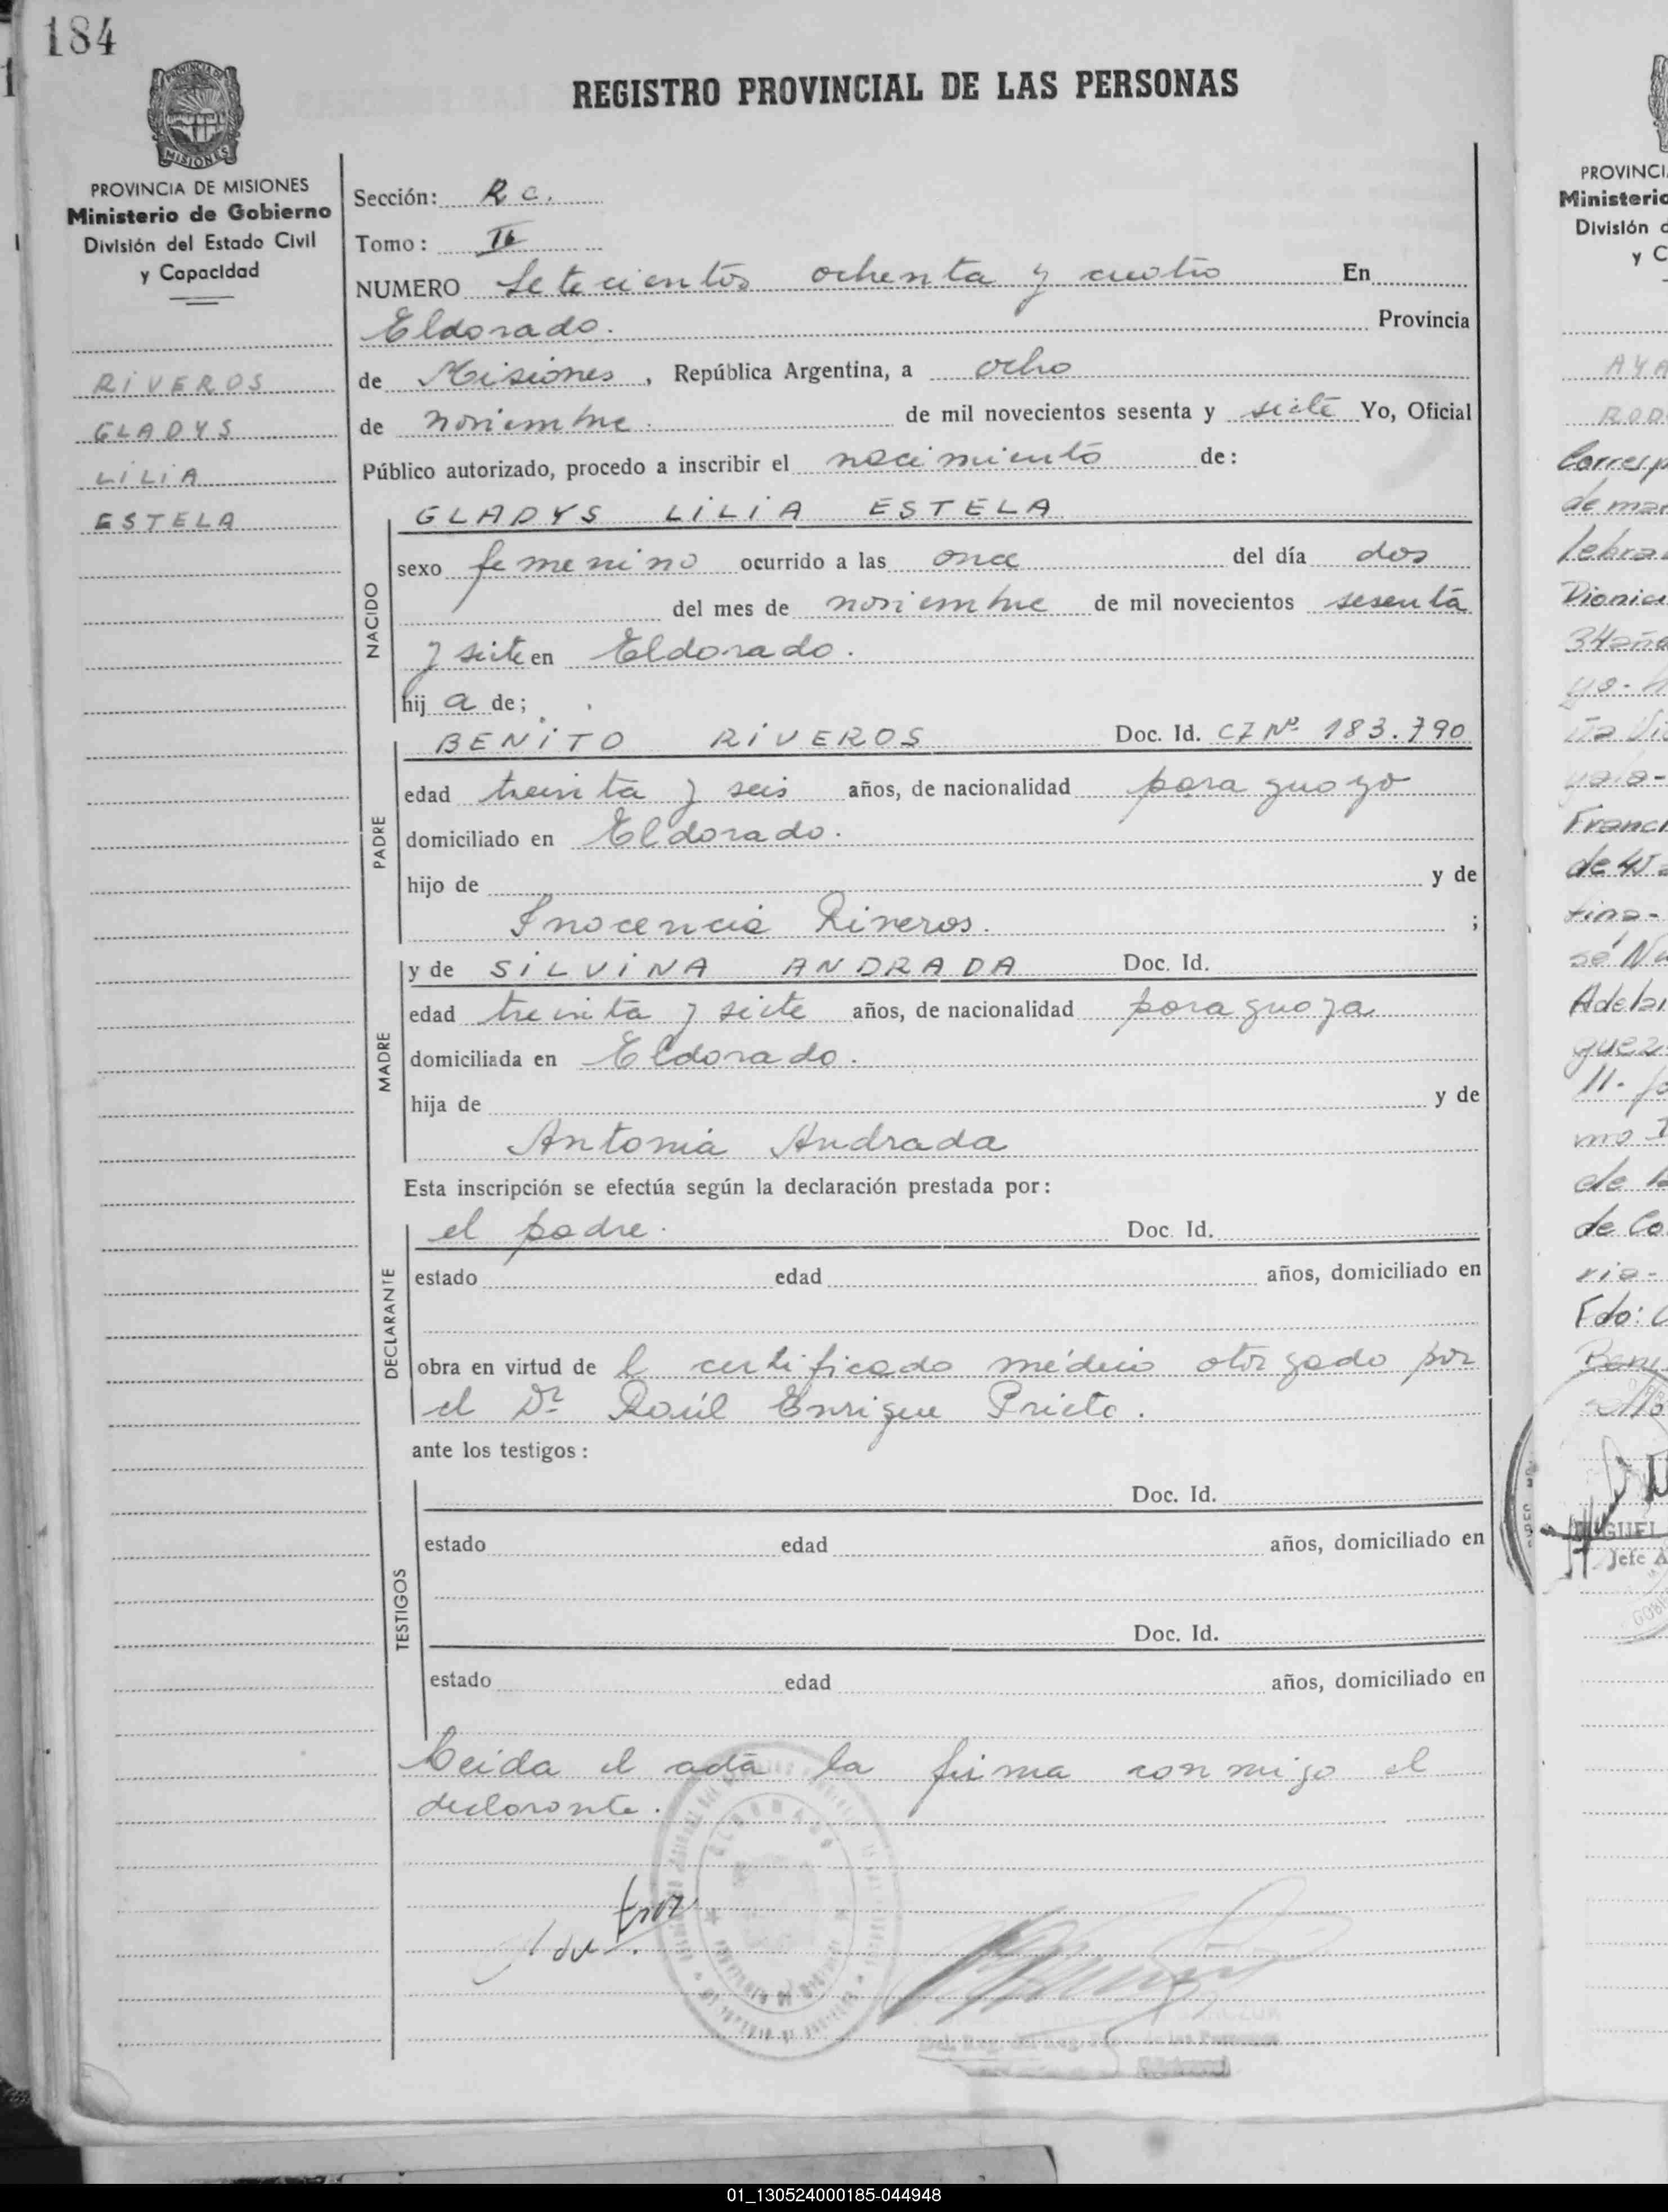 184
REGISTRO PROVINCIAL DE LAS PERSONAS
MISIONES
PROVINCIA DE MISIONES
Ministerio de Gobierno
División del Estado Civil
y Capacidad
RIVEROS
GLADYS
LILIA
ESTELA
Sección: R c.
Tomo: II
NUMERO Setecientos ochenta y cuatro En
Eldorado. Provincia
de Misiones, República Argentina, a ocho
de noviembre. de mil novecientos sesenta y siete Yo, Oficial
Público autorizado, procedo a inscribir el nacimiento de:
NACIDO
GLADYS LILIA ESTELA
sexo femenino ocurrido a las once del día dos
del mes de noviembre de mil novecientos sesenta
y siete en Eldorado.
hij a de;
PADRE
BENITO RIVEROS Doc. Id. CI Nº 183.790
edad treinta y seis años, de nacionalidad paraguayo
domiciliado en Eldorado.
hijo de y de
Inocencia Riveros. ;
MADRE
y de SILVINA ANDRADA Doc. Id.
edad treinta y siete años, de nacionalidad paraguaya
domiciliada en Eldorado.
hija de y de
Antonia Andrada
Esta inscripción se efectúa según la declaración prestada por:
DECLARANTE
el padre. Doc. Id.
estado edad años, domiciliado en
obra en virtud de l certificado médico otorgado por
el Dr. Raúl Enrique Prieto.
ante los testigos:
TESTIGOS
Doc. Id.
estado edad años, domiciliado en
Doc. Id.
estado edad años, domiciliado en
Leida el acta la firma conmigo el
declarante.
PROVINCI
Ministerio
División d
y C
AYA
ROD
Corresp
de mar
lebra
Dionici
34 año
Franci
de 45 a
tina-
sé Nu
Adelai
guez
11-
mo
de la
de Co
ria-
Fdo:
GUEL
Jefe A
01_130524000185-044948